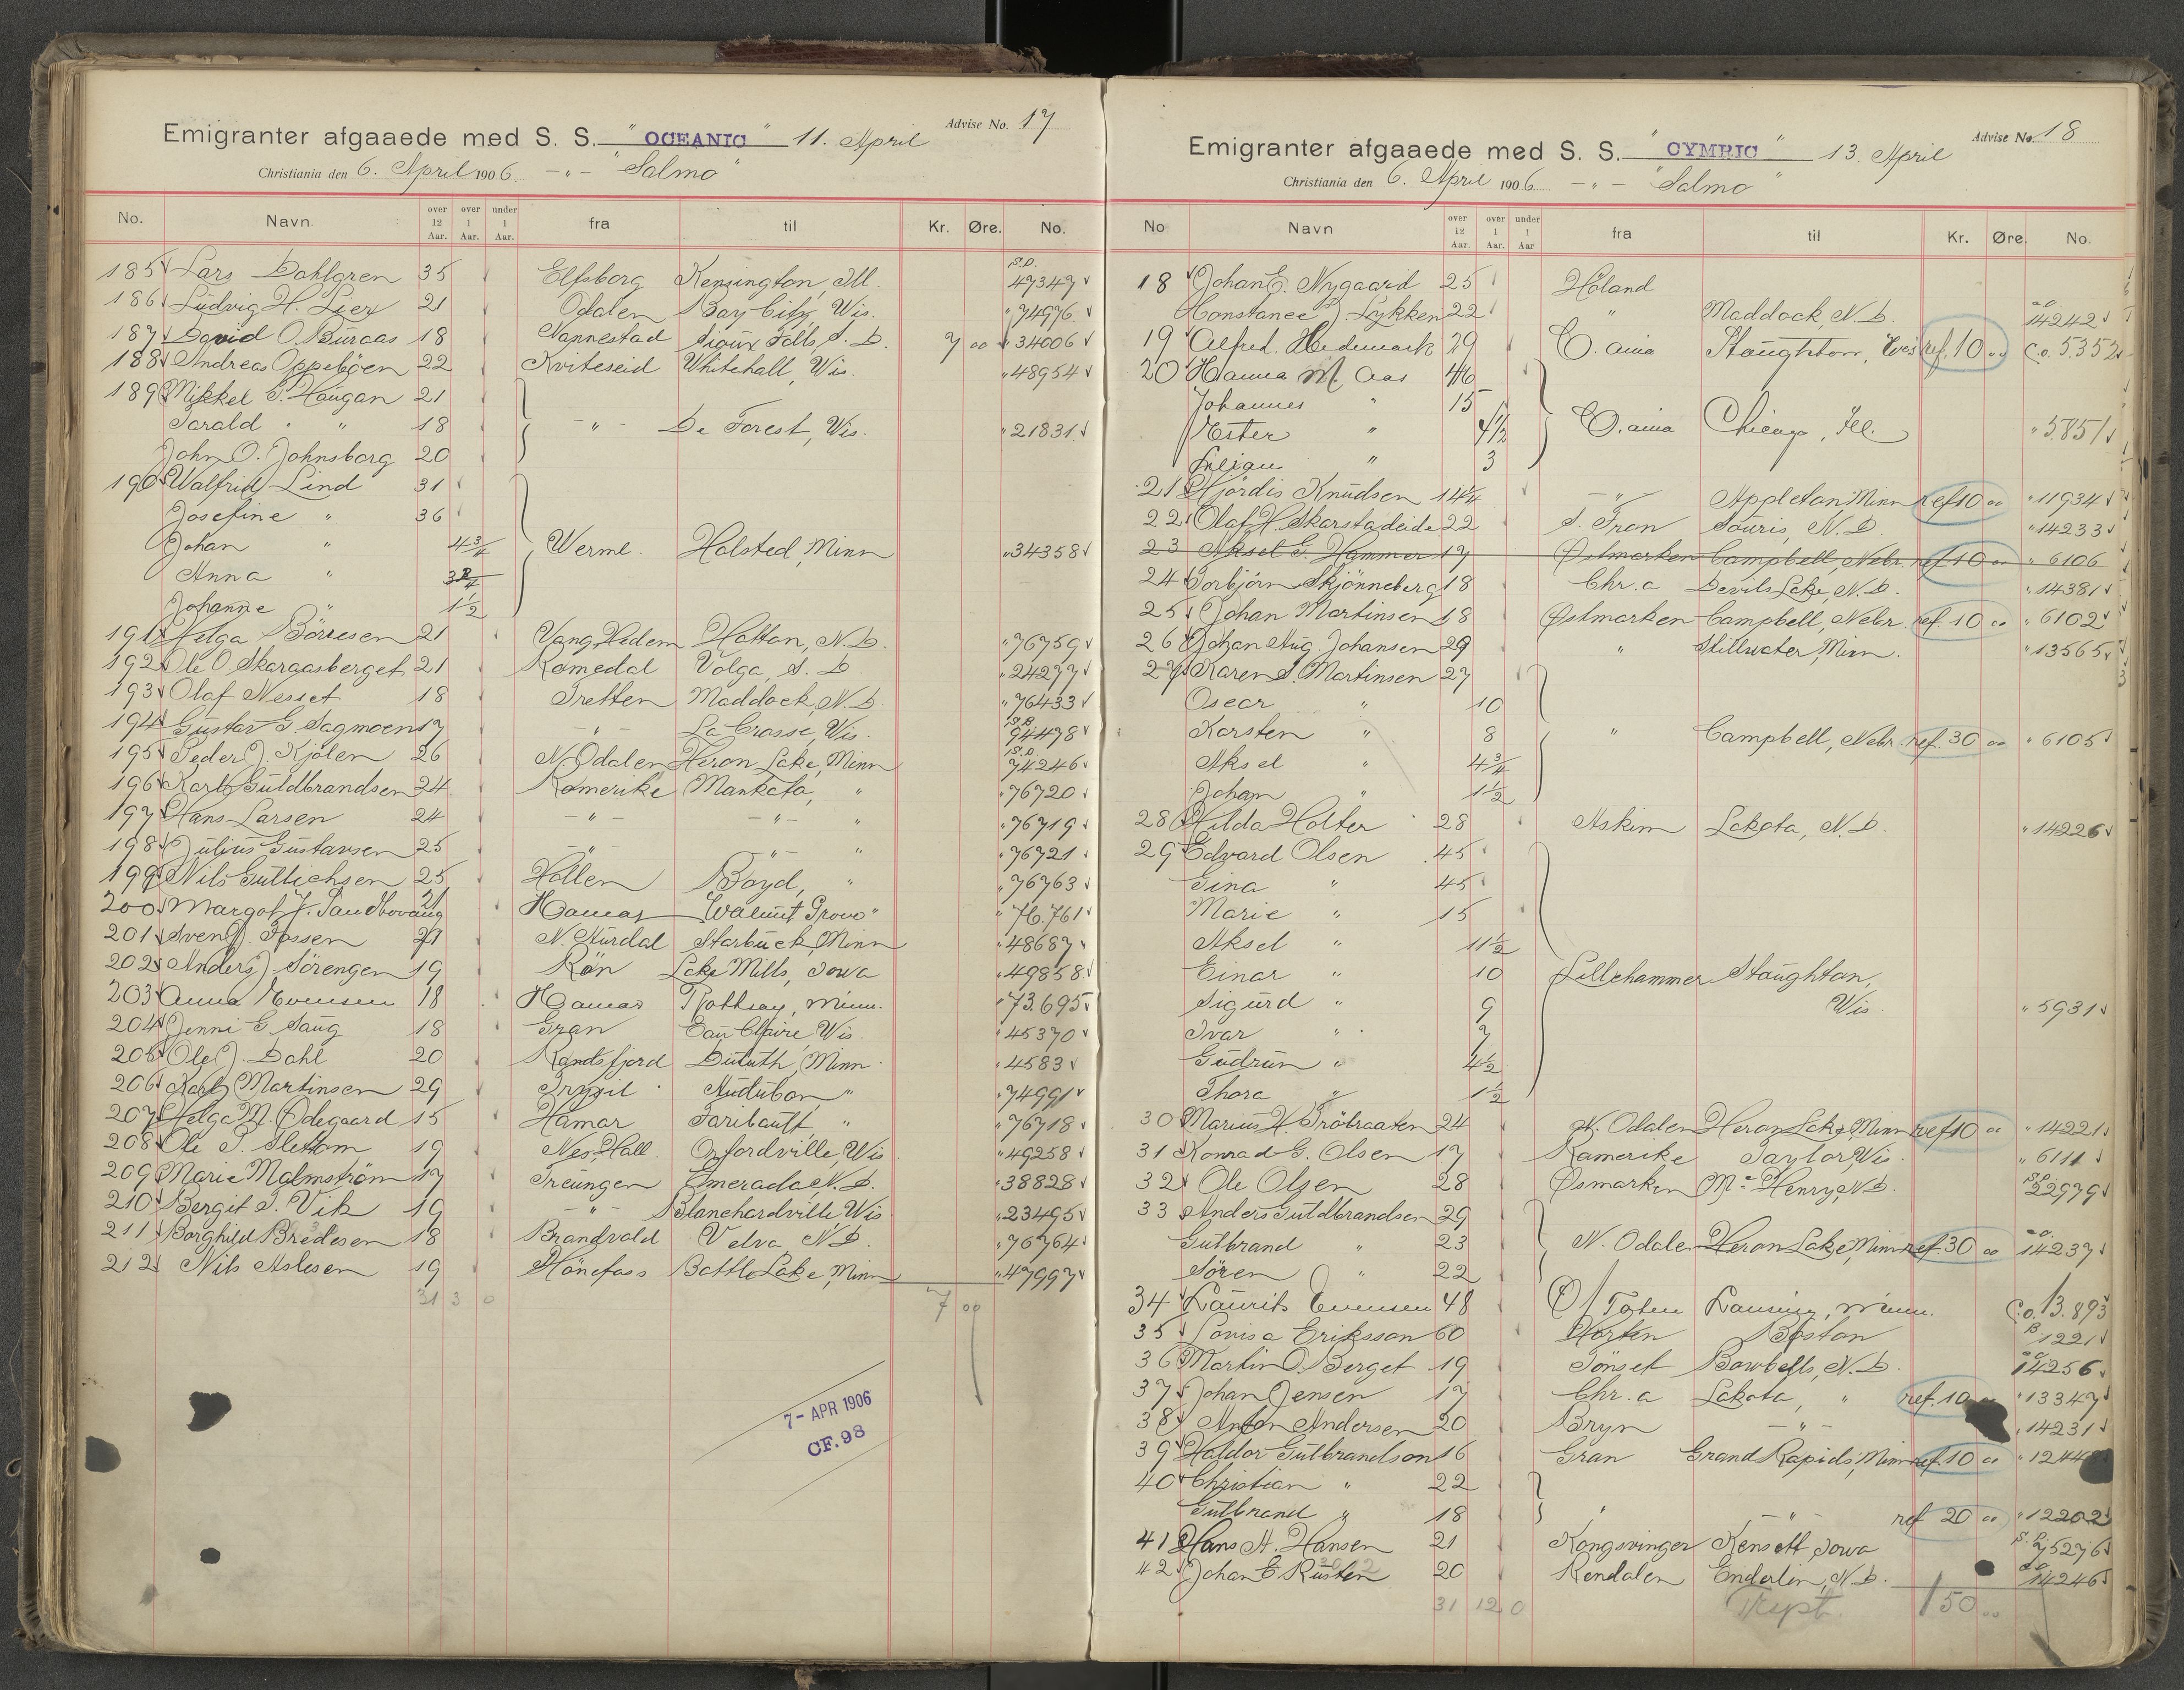 Advise No. 17
Emigranter afgaaede med S. S. "OCEANIC" 11. April
Christiania den 6. April 1906. -"- "Salmo"
No. Navn. over 12 Aar. over 1 Aar. under 1 Aar. fra til Kr. Øre. No.
185 Lars Dahlgren 35 Elfsborg Kensington, Ill. S.P. 47347
186 Ludvig H. Lier 21 Odalen Bay City, Wis. " 74976
187 David O. Buraas 18 Nannestad Sioux Falls, S. D. 7 00 " 34006
188 Andreas Oppeböen 22 Kviteseid Whitehall, Wis. " 48954
189 Mikkel T. Haugan 21
Tarald " " 18 -"- De Forest, Wis. " 21831
John O. Johnsborg 20
190 Walfrid Lind 31
Josefine " 36
Johan " 4 3/4 Werml. Halsted, Minn " 34358
Anna " 3 3/4
Johanne " 1 1/2
191 Helga Börresen 21 Vang Hedem Hatton, N. D. " 76759
192 Ole O. Skaraasberget 21 Romedal Volga, S. D. " 24277
193 Olaf Nesset 18 Tretten Maddock, N. D. " 76433
194 Gustav G. Sagmoen 17 -"- La Crosse, Wis. S.P. 94478
195 Peder J. Kjölen 26 N. Odalen Heron Lake, Minn S.P. 74246
196 Karl Guldbrandsen 24 Romerike Mankato, " " 76720
197 Hans Larsen 24 -"- -"- " " 76719
198 Julius Gustavsen 25 -"- -"- " " 76721
199 Nils Gullichsen 25 Hollen Boyd, " " 76763
200 Margot J. Sandbovang 21 Hamar Walnut Grove " " 76.761
201 Sven J. Fossen 21 N. Aurdal Starbuck, Minn " 48687
202 Anders J. Sörengen 19 Rön Lake Mills, Iowa " 49858
203 Anna Evensen 18 Hamar Rothsay, Minn. " 73.695
204 Jenni G. Saug 18 Gran Eau Claire, Wis " 45370
205 Ole J. Dahl 20 Randsfjord Duluth, Minn " 4583
206 Karl Martinsen 29 Trysil Audubon, " " 74991
207 Helga M. Ödegaard 15 Hamar Faribault " " 76718
208 Ole P. Slettom 19 Nes, Hall. Orfordville, Wis " 49258
209 Marie Malmström 17 Treungen Emerado, N. D. " 38828
210 Bergit T. Vik 19 -"- Blanchardville Wis " 23495
211 Borghild Bredesen 18 Brandvold Velva N. D. " 76764
212 Nils Aslesen 19 Hönefoss Battle Lake, Minn " 47997
31 3 0 7 00
7- APR 1906
CF. 98
Advise No. 18
Emigranter afgaaede med S. S. "CYMRIC" 13. April
Christiania den 6. April 1906. -"- "Salmo"
No Navn over 12 Aar. over 1 Aar. under 1 Aar fra til Kr. Øre. No.
18 Johan E. Nygaard 25 Höland
Constance J. Lykken 22 " Maddock, N. D. 14242
19 Alfred Hedemark 29 C. ania Stoughton, Wis ref. 10 00 C.o. 5352
20 Hanna M. Aas 46
Johannes " 15
Ester " 4 1/2 C. ania Chicago, Ill. " 5851
" 3
21 Hjördis Knudsen 14 1/4 -"- Appleton, Minn ref 10 00 " 11934
22 Olaf H. Skarstadeide 22 S. Fron Souris, N. D. " 14233
23 Aksel G. Hammer 17 Østmarken Campbell, Nebr. ref. 10 00 " 6106
24 Torbjörn Skjönneberg 18 Chr. a Devils Lake, N. D. " 14381
25 Johan Martinsen 18 Østmarken Campbell, Nebr. ref 10 00 " 6102
26 Johan Aug Johansen 29 " Stillwater, Minn. " 13565
27 Karen S. Martinsen 27
Oscar " 10
Karsten " 8 " Campbell, Nebr. ref. 30 00 " 6105
Aksel " 4 3/4
Johan " 1 1/2
28 Hilda Holter 28 Askim Lakota, N. D. " 14226
29 Edvard Olsen 45
Gina " 45
Marie " 15
Aksel " 11 1/2
Einar " 10 Lillehammer Stoughton,
Sigurd " 9 Wis. " 5931
Ivar " 7
Gudrun " 4 1/2
Thora " 1 1/2
30 Marius H. Tröbraaten 24 N. Odalen Heron Lake, Minn ref 10 00 " 14221
31 Konrad G. Olsen 17 Romerike Taylor, Wis. " 6111
32 Ole Olsen 28 Øsmarken Mc Henry, N. D. S.P. 22979
33 Anders Gutdbrandsen 29
Gutbrand " 23 N. Odalen Heron Lake, Minn ref. 30 00 14237
Sören " 22
34 Laurits Evensen 48 Ø/ Toten Lansing, Minn. C.o. 13.893
35 Lovisa Eriksson 60 Horten Boston B 1221
36 Martin O. Berget 19 Tönset Bowbells, N. D. 14256
37 Johan Jensen 17 Chr. a Lakota, " ref. 10 " 13347
38 Anton Andersen 20 Bryn -"- " 14231
39 Haldor Gutbrandson 16 Gran Grand Rapids, Minn ref. 10 00 " 1244
40 Christian " 22
Gutbrand " 18 " -"- ref 20 00 " 12202
41 Hans A. Hansen 21 Kongsvinger Kensett Iowa S.P. 75276
42 Johan E. Rusten 20 Rendalen Enderlin, N. D. 14246
31 12 0 150 00